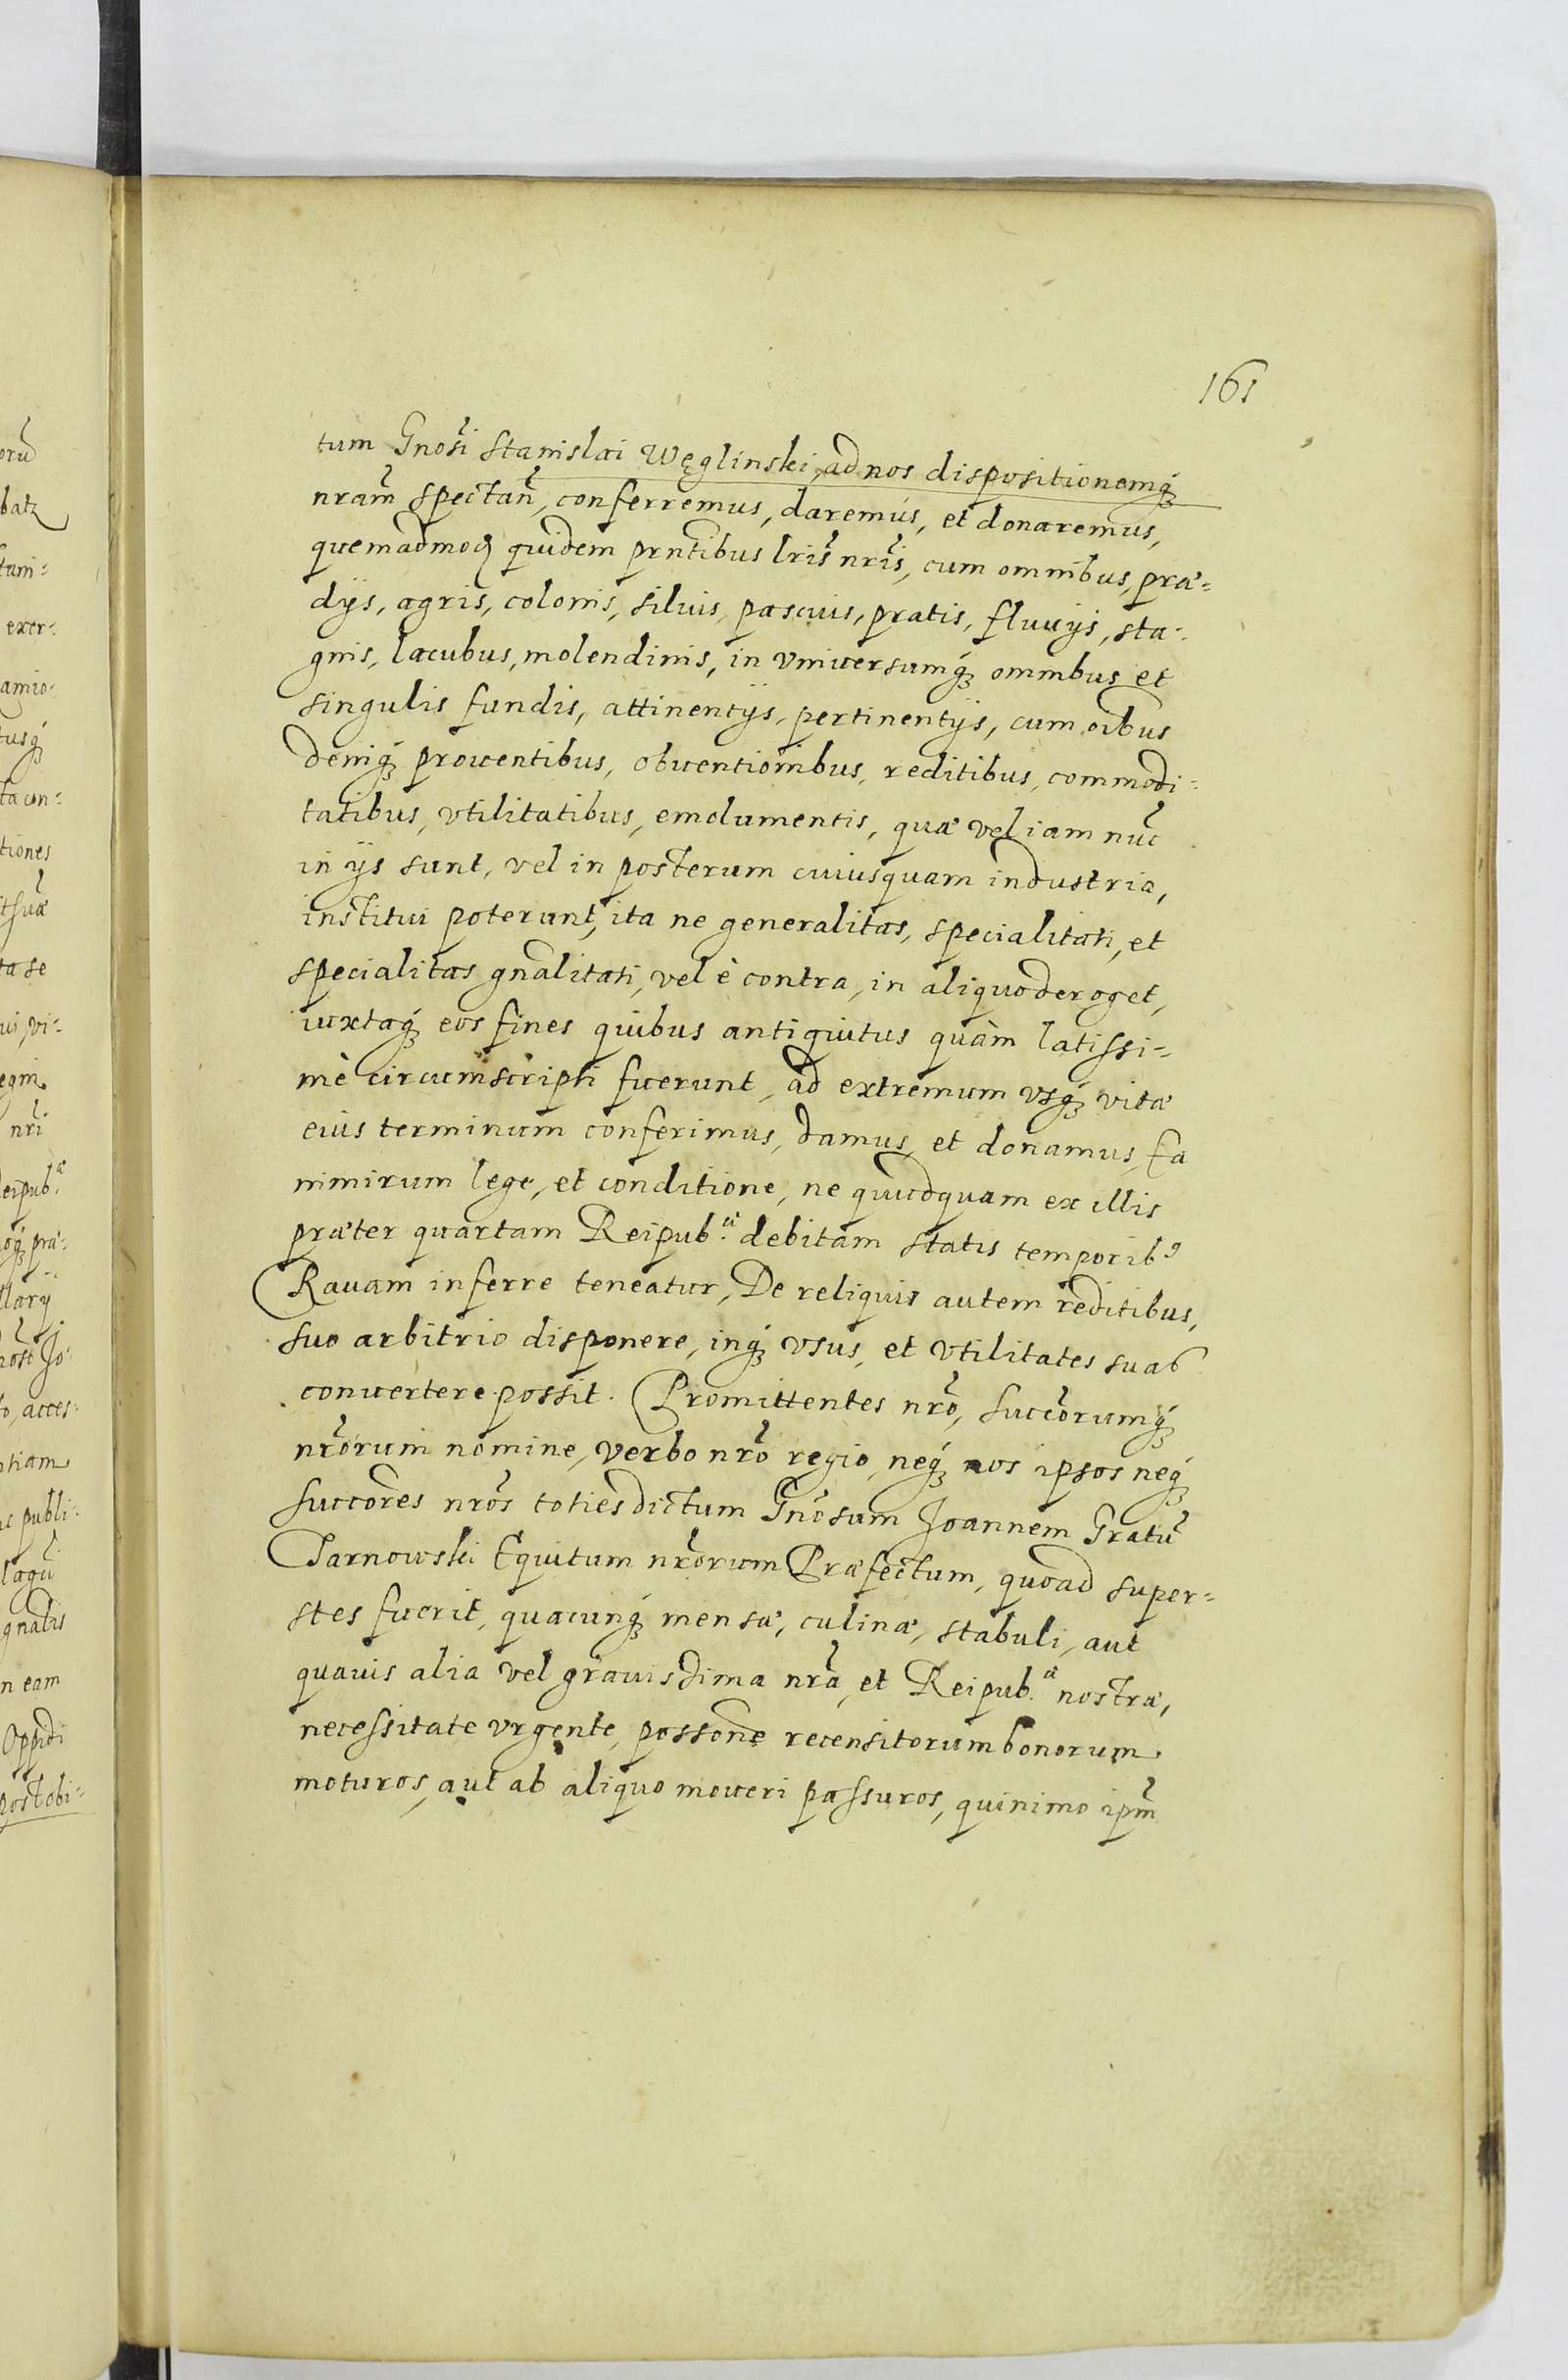 161
tum Gnosi Stanislai Węglinski, ad nos dispositionemq́ꝫ
nram̃ spectañ, conferremus, daremus, et donaremus,
quemadmoꝗ quidem prntibus lris nris, cum omnibus, præ-
dijs, agris, colonis, siluis, pascuis, pratis, fluuijs, sta-
gnis, lacubus, molendinis, in vniuersumq́ꝫ omnibus et
singulis fundis, attinentijs, pertinentijs, cum oibus
deniq́ꝫ prouentibus, obuentionibus, reditibus, commodi-
tatibus, vtilitatibus, emolumentis, quæ vel iam nuc̃
in ijs sunt, vel in posterum cuiusquam industria,
institui poterunt, ita ne generalitas, specialitati, et
specialitas gnalitati, vel è contra, in aliquo deroget,
iuxtaq́ꝫ eos fines quibus antiquitus quàm latissi-
mè circumscripti fuerunt, ad extremum vsq́ꝫ vitæ
eius terminum conferimus, damus, et donamus, Ea
nimirum lege, et conditione, ne quicdquam ex illis
præter quartam Reipub.æ debitam statis temporib9
Rauam inferre teneatur, De reliquis autem reditibus,
suo arbitrio disponere, inq́ꝫ vsus, et vtilitates suas
conuertere possit. Promittentes nrõ, succõrumq́ꝫ
nrõrum nomine, verbo nrõ regio, neq́ꝫ nos ipsos neq́ꝫ
succõres nrõs toties dictum Gnõsum Joannem Gratũ
Tarnowski Equitum nrõrum Præfectum, quoad super-
stes fuerit, quacunq́ꝫ mensæ, culinæ, stabuli, aut
quauis alia vel grauissima nrã, et Reipub.æ nostræ,
necessitate vrgente, possone recensitorum bonorum
moturos, aut ab aliquo moueri passuros, quinimo ipm̃